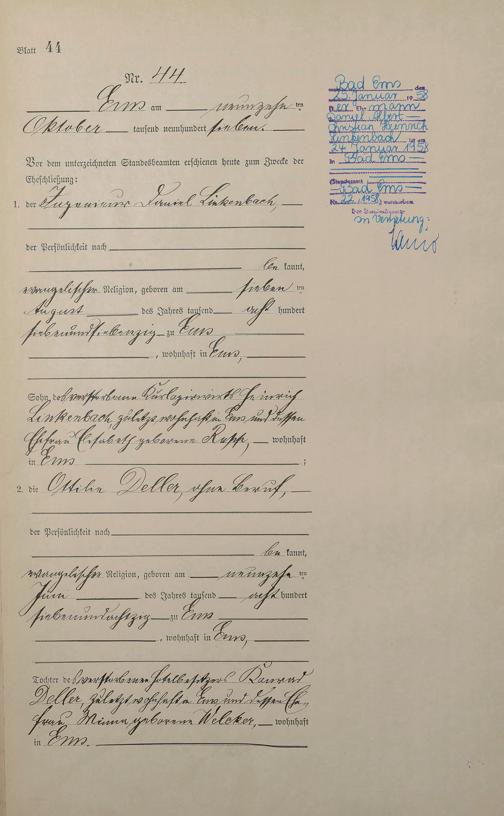 Blatt 44
Nr. 44
Ems am neunzehnten
Oktober tausend neunhundert sieben.
Vor dem unterzeichneten Standesbeamten erschienen heute zum Zwecke der
Eheschließung:
1. der Ingenieur Daniel Linkenbach,
der Persönlichkeit nach
be kannt,
evangelischer Religion, geboren am sieben ten
August des Jahres tausend acht hundert
siebenundsiebenzig zu Ems
, wohnhaft in Ems,
Sohn des verstorbenen Heinrich
Linkenbach, zuletzt wohnhaft in Ems und dessen
Ehefrau Elisabeth geborene wohnhaft
in Ems ;
2. die Ottilie Deller, ohne Beruf,
der Persönlichkeit nach
be kannt,
evangelischer Religion, geboren am neunzehn ten
Juni des Jahres tausend acht hundert
siebenundachtzig zu Ems
, wohnhaft in Ems,
Tochter des verstorbenen Hotelbesitzers Konrad
Deller, zuletzt wohnhaft in Ems und dessen Ehe-
frau Minna geborene Welcker, wohnhaft
in Ems.
Bad Ems den
25. Januar 1958
Der Ehemann
Daniel Albert
Christian Heinrich
Linkenbach ist am
24. Januar 1958
in Bad Ems
Bad Ems
Nr. 22/1958
Der Standesbeamte
In Vertretung: